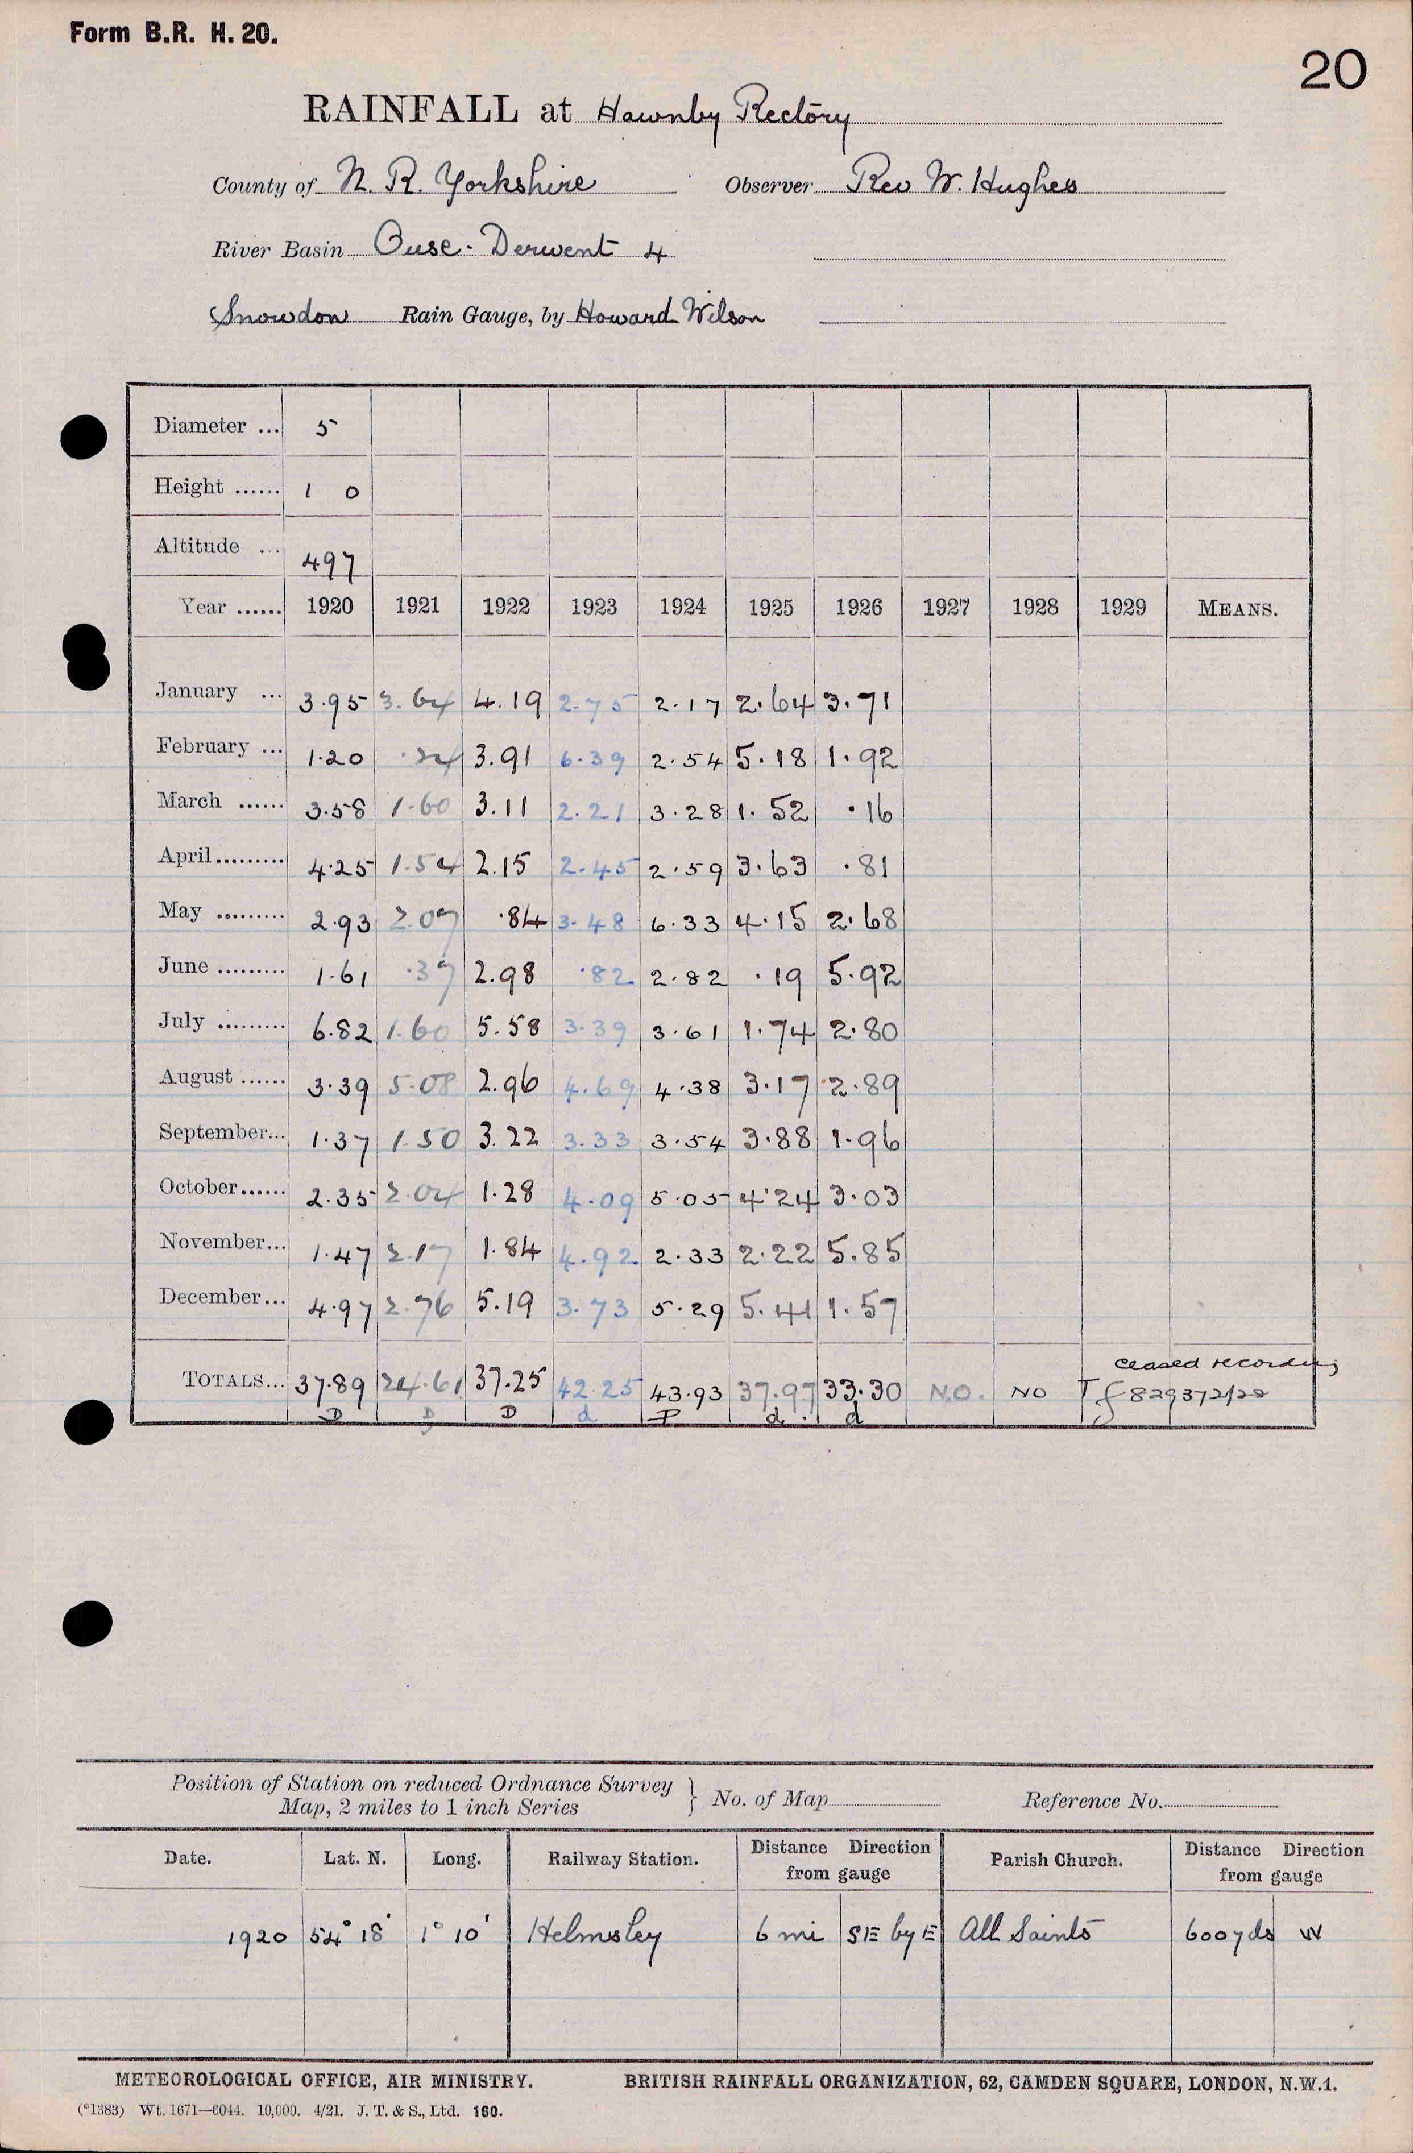 Form B.R. H. 20.
20
RAINFALL at Hawnby Rectory
County of N. R. Yorkshire Observer Rev W. Hughes
River Basin Ouse - Derwent 4
Snowdon Rain Gauge, by Howard Wilson
Diameter ... 5
Height ...... 1 0
Altitude ... 497
Year ...... 1920 1921 1922 1923 1924 1925 1926 1927 1928 1929 MEANS.
January ... 3.95 3.64 4.19 2.75 2.17 2.64 3.71
February ... 1.20 .24 3.91 6.39 2.54 5.18 1.92
March ...... 3.58 1.60 3.11 2.21 3.28 1.52 .16
April......... 4.25 1.54 2.15 2.45 2.59 3.63 .81
May ......... 2.93 2.07 .84 3.48 6.33 4.15 2.68
June ......... 1.61 .37 2.98 .82 2.82 .19 5.92
July ......... 6.82 1.60 5.58 3.39 3.61 1.74 2.80
August ...... 3.39 5.08 2.96 4.69 4.38 3.17 2.89
September... 1.37 1.50 3.22 3.33 3.54 3.88 1.96
October...... 2.35 2.04 1.28 4.09 5.05 4.24 3.03
November... 1.47 2.17 1.84 4.92 2.33 2.22 5.85
December... 4.97 2.76 5.19 3.73 5.29 5.41 1.57
ceased recording
TOTALS... 37.89 24.61 37.25 42.25 43.93 37.97 33.30 N.O. NO 829372/28
D D D d P d. d
Position of Station on reduced Ordnance Survey
Map, 2 miles to 1 inch Series } No. of Map Reference No.
Date. Lat. N. Long. Railway Station. Distance Direction from gauge Parish Church. Distance Direction from gauge
1920 54° 18' 1° 10' Helmsley 6 mi SE by E All Saints 600 yds W
METEOROLOGICAL OFFICE, AIR MINISTRY. BRITISH RAINFALL ORGANIZATION, 62, CAMDEN SQUARE, LONDON, N.W.1.
(*1383) Wt. 1671—6044. 10,000. 4/21. J. T. & S., Ltd. 160.